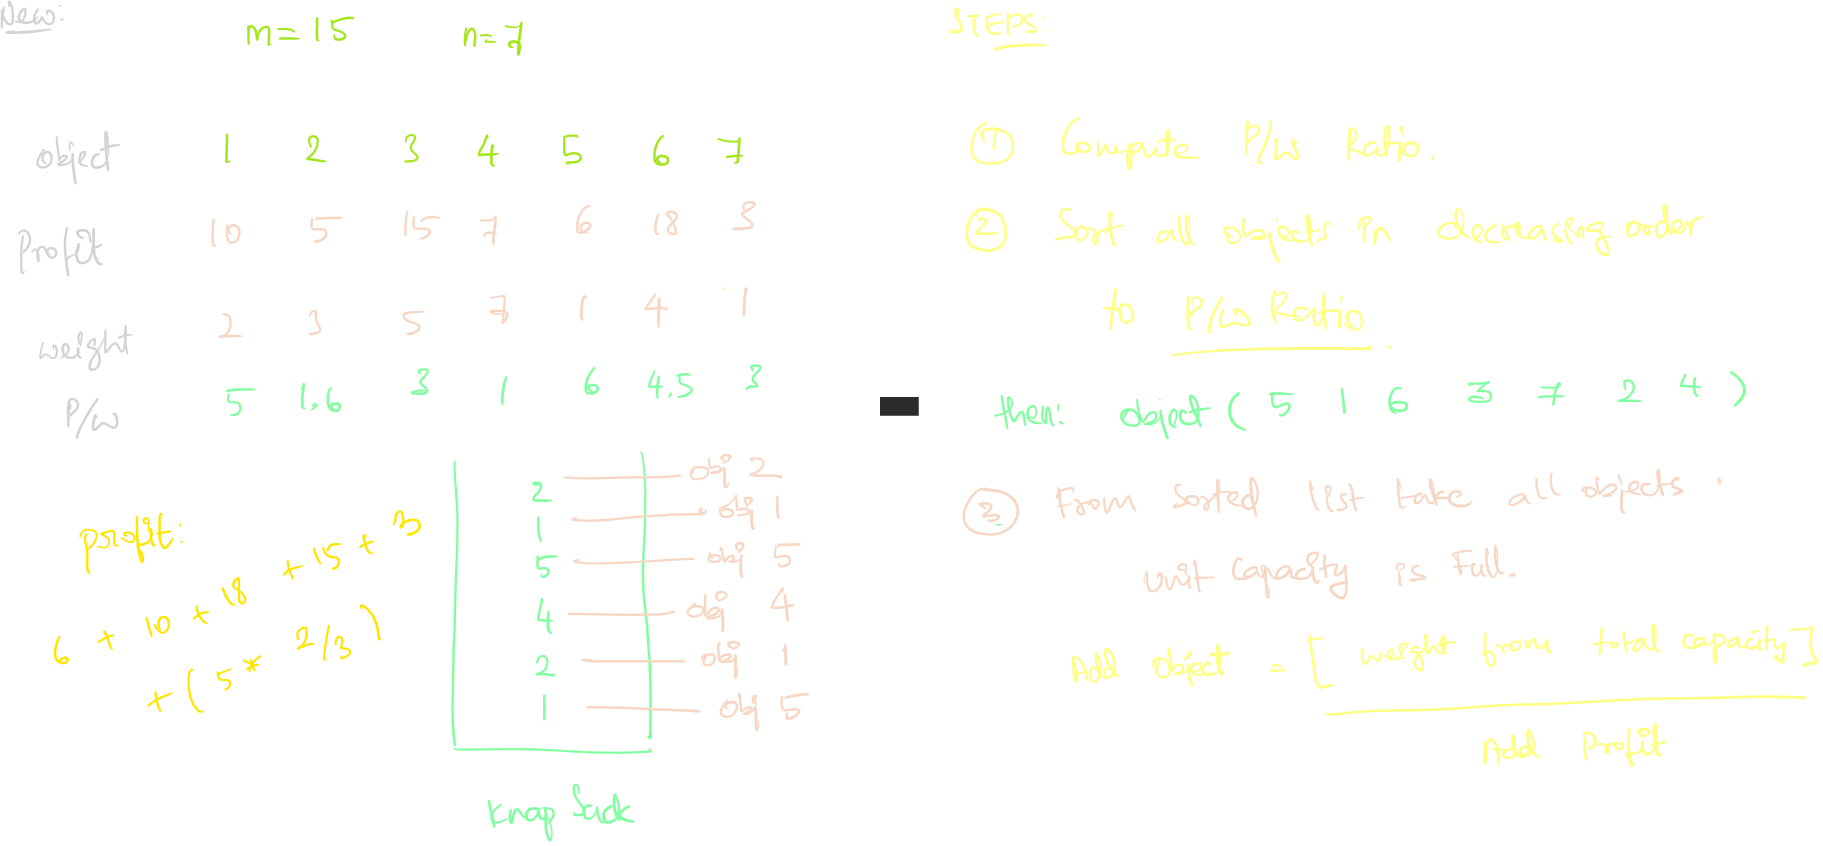 New:
m = 15 n = 7
object 1 2 3 4 5 6 7
Profit 10 5 15 7 6 18 3
weight 2 3 5 7 1 4 1
P/w 5 1.6 3 1 6 4.5 3
profit:
6 + 10 + 18 + 15 + 3
+ (5 * 2/3)
2 obj 2
1 obj 1
5 obj 5
4 obj 4
2 obj 1
1 obj 5
Knap Sack
STEPS:
① Compute P/w Ratio.
② Sort all objects in decreasing order
to P/w Ratio.
then: object ( 5 1 6 3 7 2 4 )
③ From sorted list take all objects.
unit capacity is Full.
Add object = [ weight from total capacity ]
Add Profit